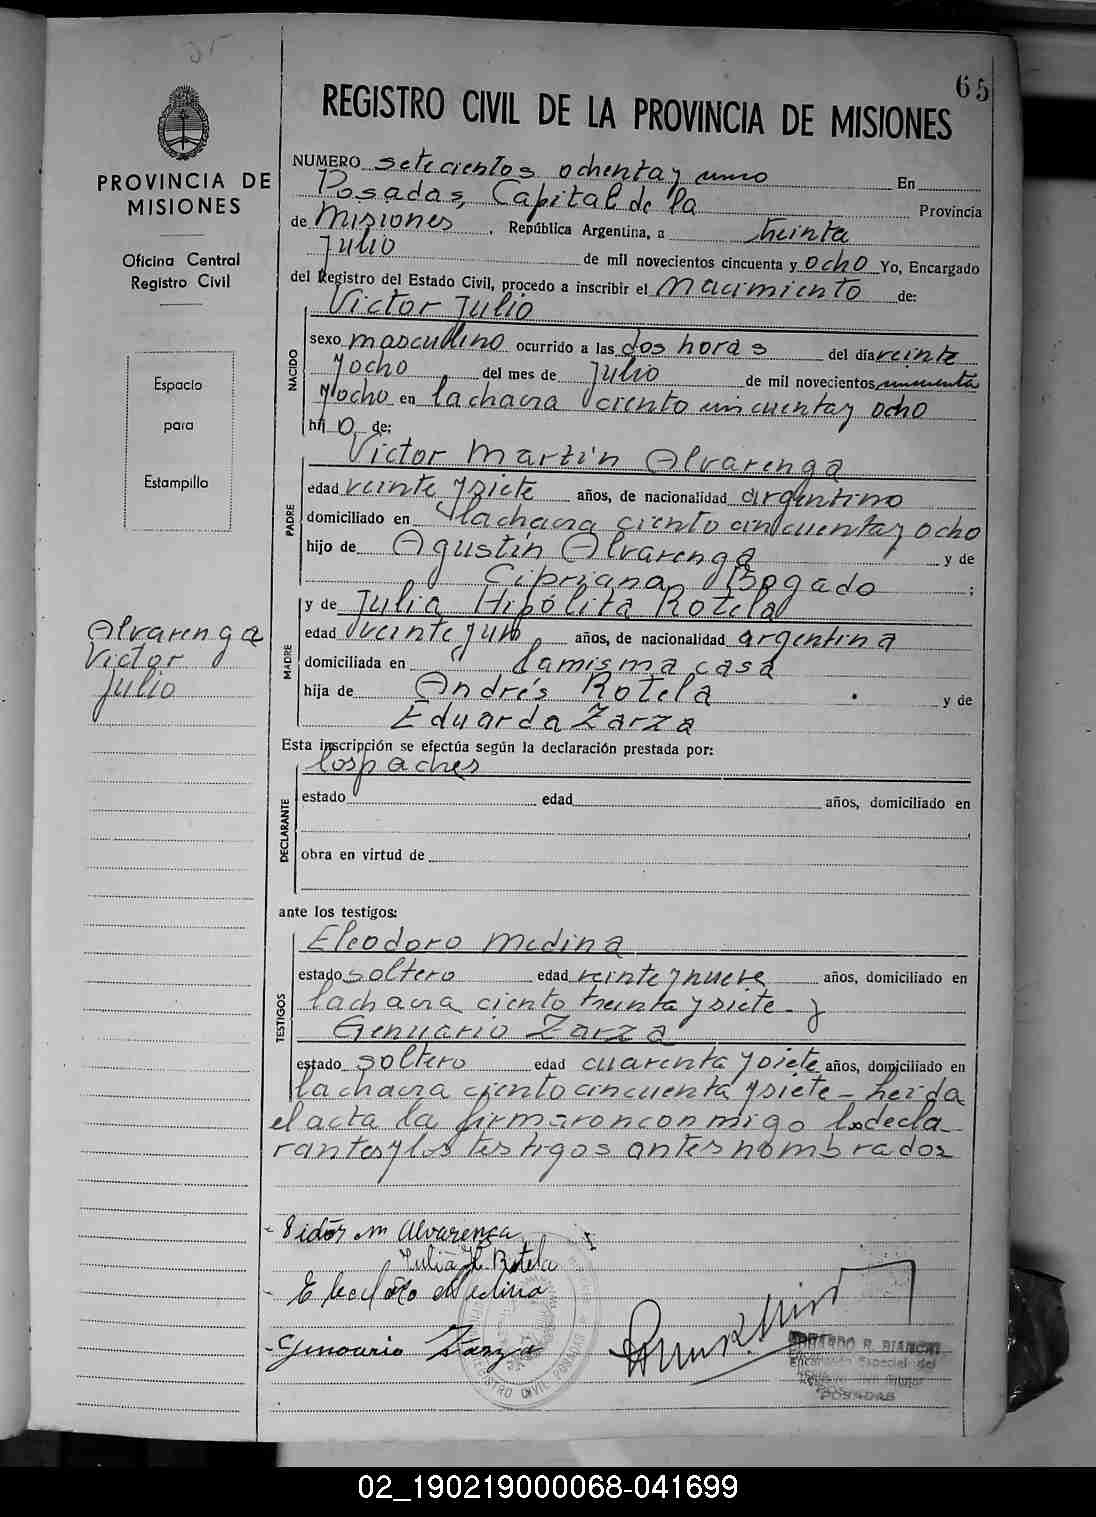 65
REGISTRO CIVIL DE LA PROVINCIA DE MISIONES
PROVINCIA DE
MISIONES
Oficina Central
Registro Civil
Espacio
para
Estampillo
Alvarenga
Victor
Julio
NUMERO setecientos ochenta y uno En
Posadas, Capital de la Provincia
de Misiones, República Argentina, a treinta
Julio de mil novecientos cincuenta y ocho Yo, Encargado
del Registro del Estado Civil, procedo a inscribir el Nacimiento de:
NACIDO
Victor Julio
sexo masculino ocurrido a las dos horas del día veinte
y ocho del mes de Julio de mil novecientos cincuenta
y ocho en la chacra ciento cincuenta y ocho
hijo de:
PADRE
Victor Martín Alvarenga
edad veinte y siete años, de nacionalidad argentino
domiciliado en la chacra ciento cincuenta y ocho
hijo de Agustín Alvarenga y de
Cipriana Bogado ;
MADRE
y de Julia Hipólita Rotela
edad veinte y un años, de nacionalidad argentina
domiciliada en la misma casa
hija de Andrés Rotela y de
Eduarda Zarza
Esta inscripción se efectúa según la declaración prestada por:
DECLARANTE
los padres
estado edad años, domiciliado en
obra en virtud de
ante los testigos:
TESTIGOS
Eleodoro Medina
estado soltero edad veinte y nueve años, domiciliado en
la chacra ciento treinta y siete - y
Genuario Zarza
estado soltero edad cuarenta y siete años, domiciliado en
la chacra ciento cincuenta y siete - leída
el acta la firmaron conmigo los decla
rantes y los testigos antes nombrados
Victor M Alvarenga
Julia H. Rotela
Eleodoro Medina
Genuario Zarza
EDUARDO R. BIANCHI
Encargado Especial del
POSADAS
02_190219000068-041699